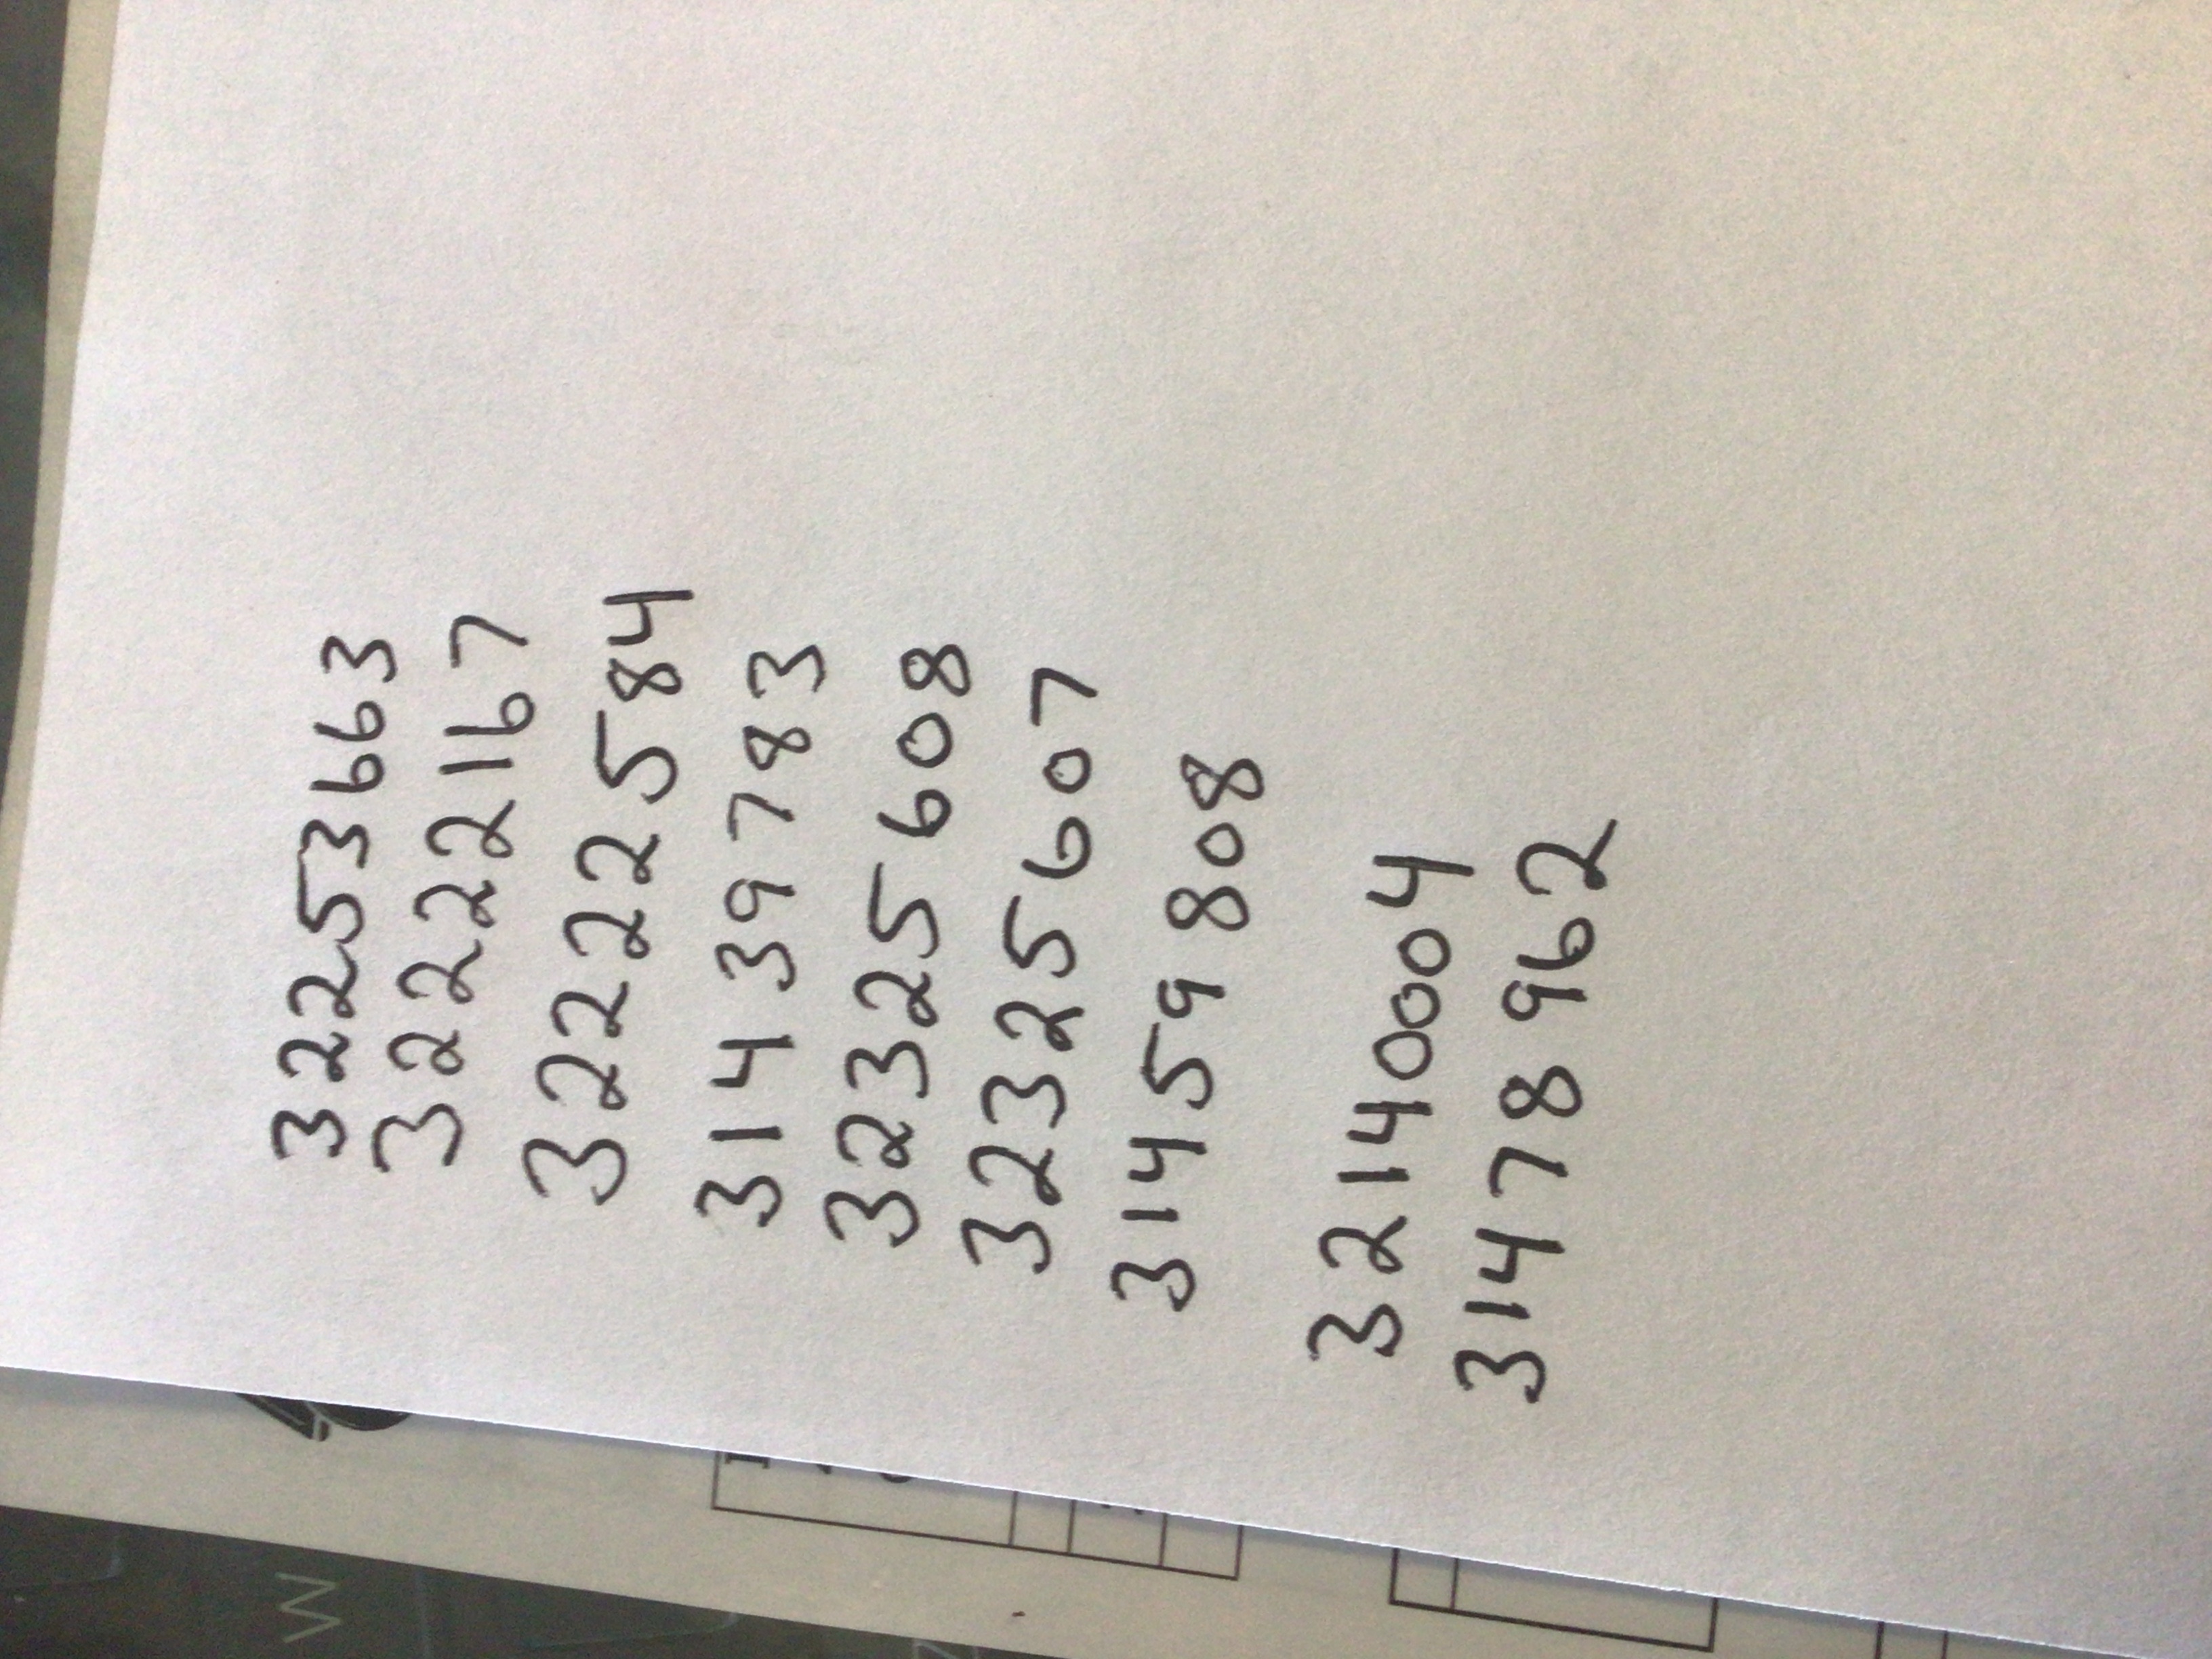 32253663
32222167
32222584
31439783
32325608
32325607
31459808
32140004
31478962